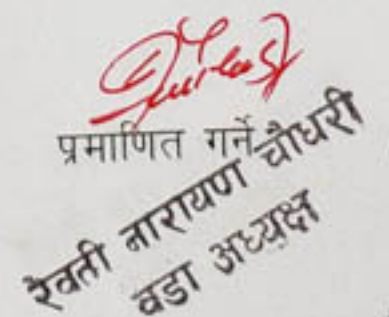 प्रमाणित गर्ने
रेवती नारायण चौधरी
वडा अध्यक्ष